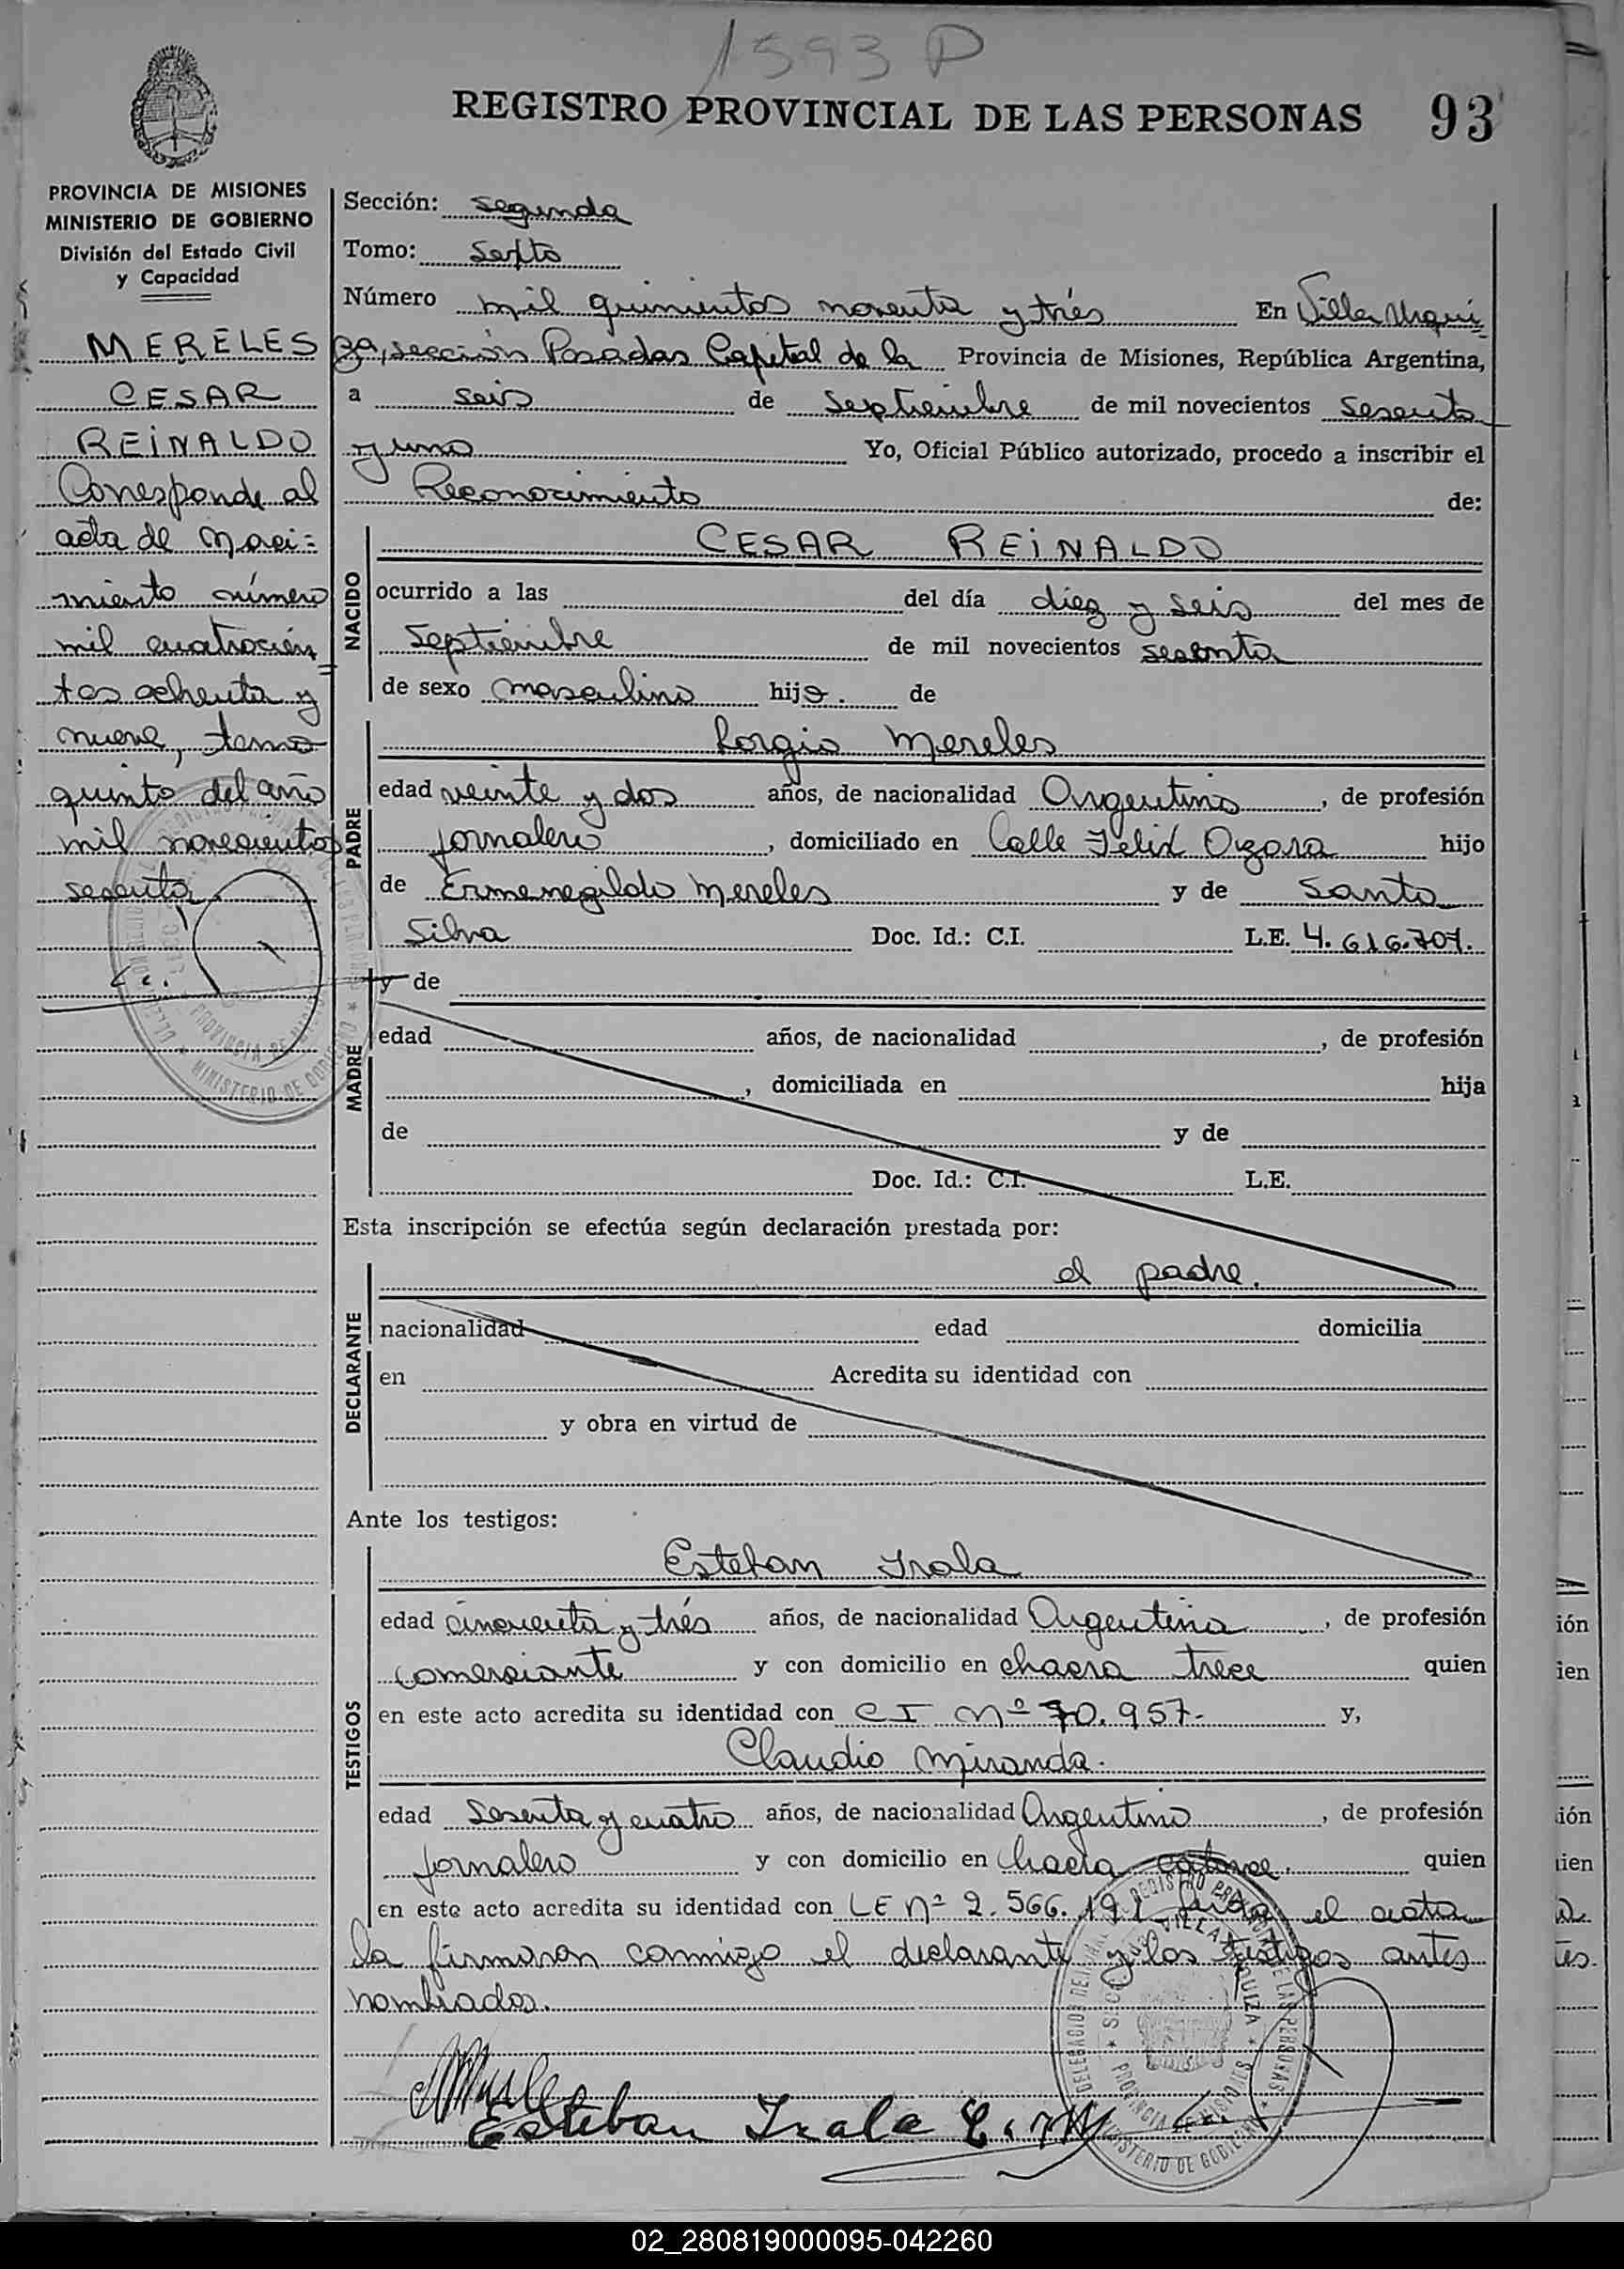 1593 P
REGISTRO PROVINCIAL DE LAS PERSONAS 93
PROVINCIA DE MISIONES
MINISTERIO DE GOBIERNO
División del Estado Civil
y Capacidad
MERELES
CESAR
REINALDO
Corresponde al
acta de naci=
miento número
mil cuatrocien
tos ochenta y
nueve, tomo
quinto del año
mil novecientos
sesenta.
Sección: segunda
Tomo: Sexto
Número mil quinientos noventa y trés En Villa Urqui
za, sección Posadas Capital de la Provincia de Misiones, República Argentina,
a seis de Septiembre de mil novecientos Sesenta
y uno Yo, Oficial Público autorizado, procedo a inscribir el
Reconocimiento de:
NACIDO
CESAR REINALDO
ocurrido a las del día diez y seis del mes de
Septiembre de mil novecientos sesenta
de sexo masculino hijo. de
PADRE
Lorgio Mereles
edad veinte y dos años, de nacionalidad Argentino, de profesión
jornalero, domiciliado en Calle Felix Ozara hijo
de Ermenegildo Mereles y de Santa
Silva Doc. Id.: C.I. L.E. 4.616.707.
MADRE
y de
edad años, de nacionalidad , de profesión
, domiciliada en hija
de y de
Doc. Id.: C.I. L.E.
Esta inscripción se efectúa según declaración prestada por:
DECLARANTE
el padre.
nacionalidad edad domicilia
en Acredita su identidad con
y obra en virtud de
Ante los testigos:
TESTIGOS
Esteban Irala
edad cincuenta y trés años, de nacionalidad Argentina, de profesión
comerciante y con domicilio en chacra trece quien
en este acto acredita su identidad con CI Nº 70.957- y,
Claudio Miranda.
edad Sesenta y cuatro años, de nacionalidad Argentino, de profesión
jornalero y con domicilio en chacra catorce. quien
en este acto acredita su identidad con LE Nº 2.566.191 leida el acta
la firmaron conmigo el declarante y los testigos antes
nombrados.
Esteban Irala
02_280819000095-042260